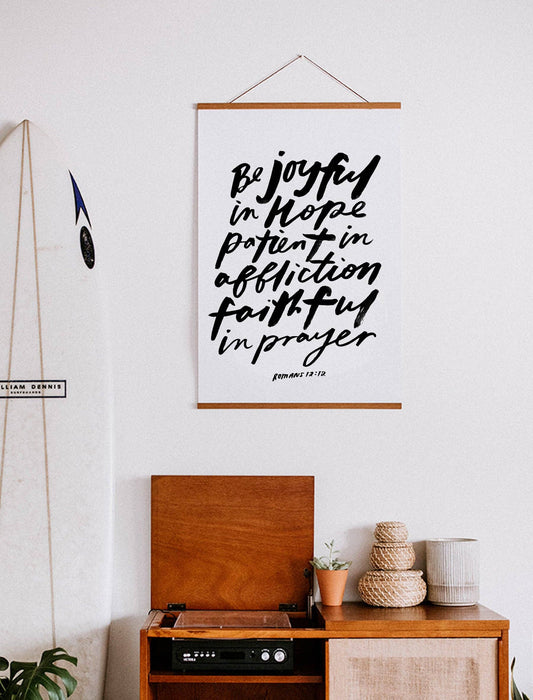 Be joyful
in Hope
patient in
affliction
faithful
in prayer
ROMANS 12:12
LLIAM DENNIS
SURFBOARDS
VICTROLA